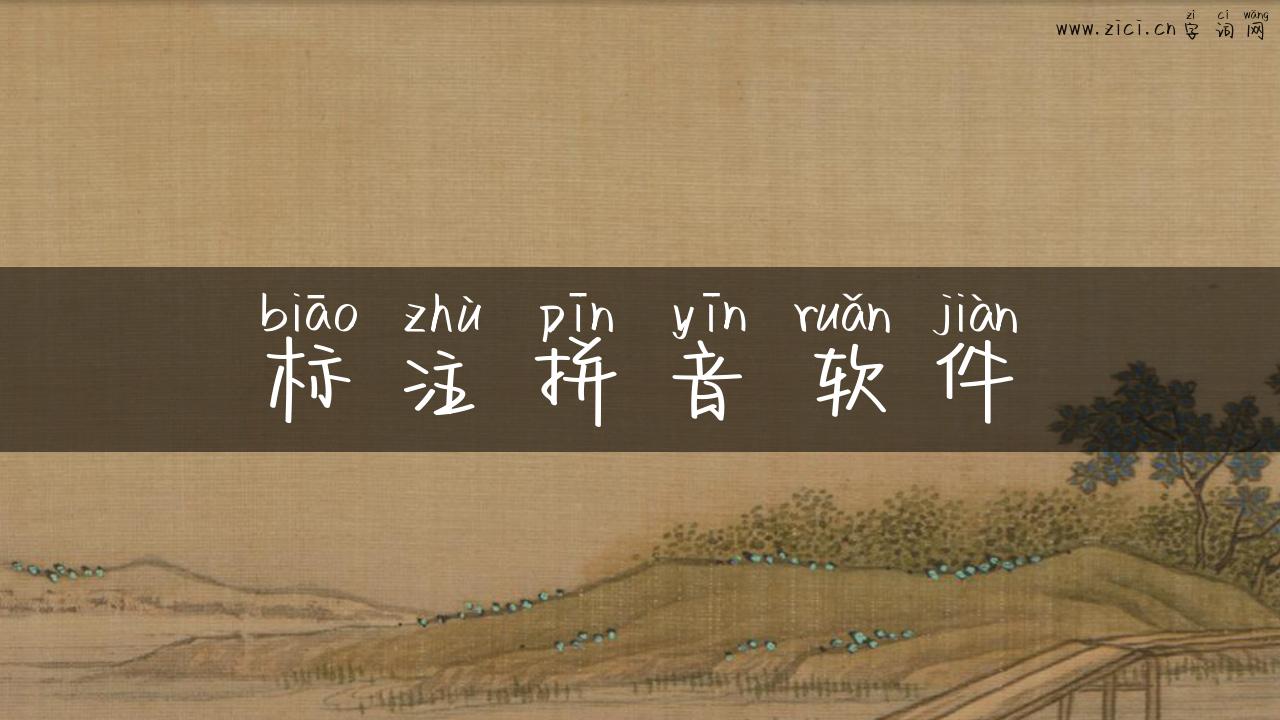 zì cí wǎng
www.zici.cn字词网
biāo zhù pīn yīn ruǎn jiàn
标注拼音软件